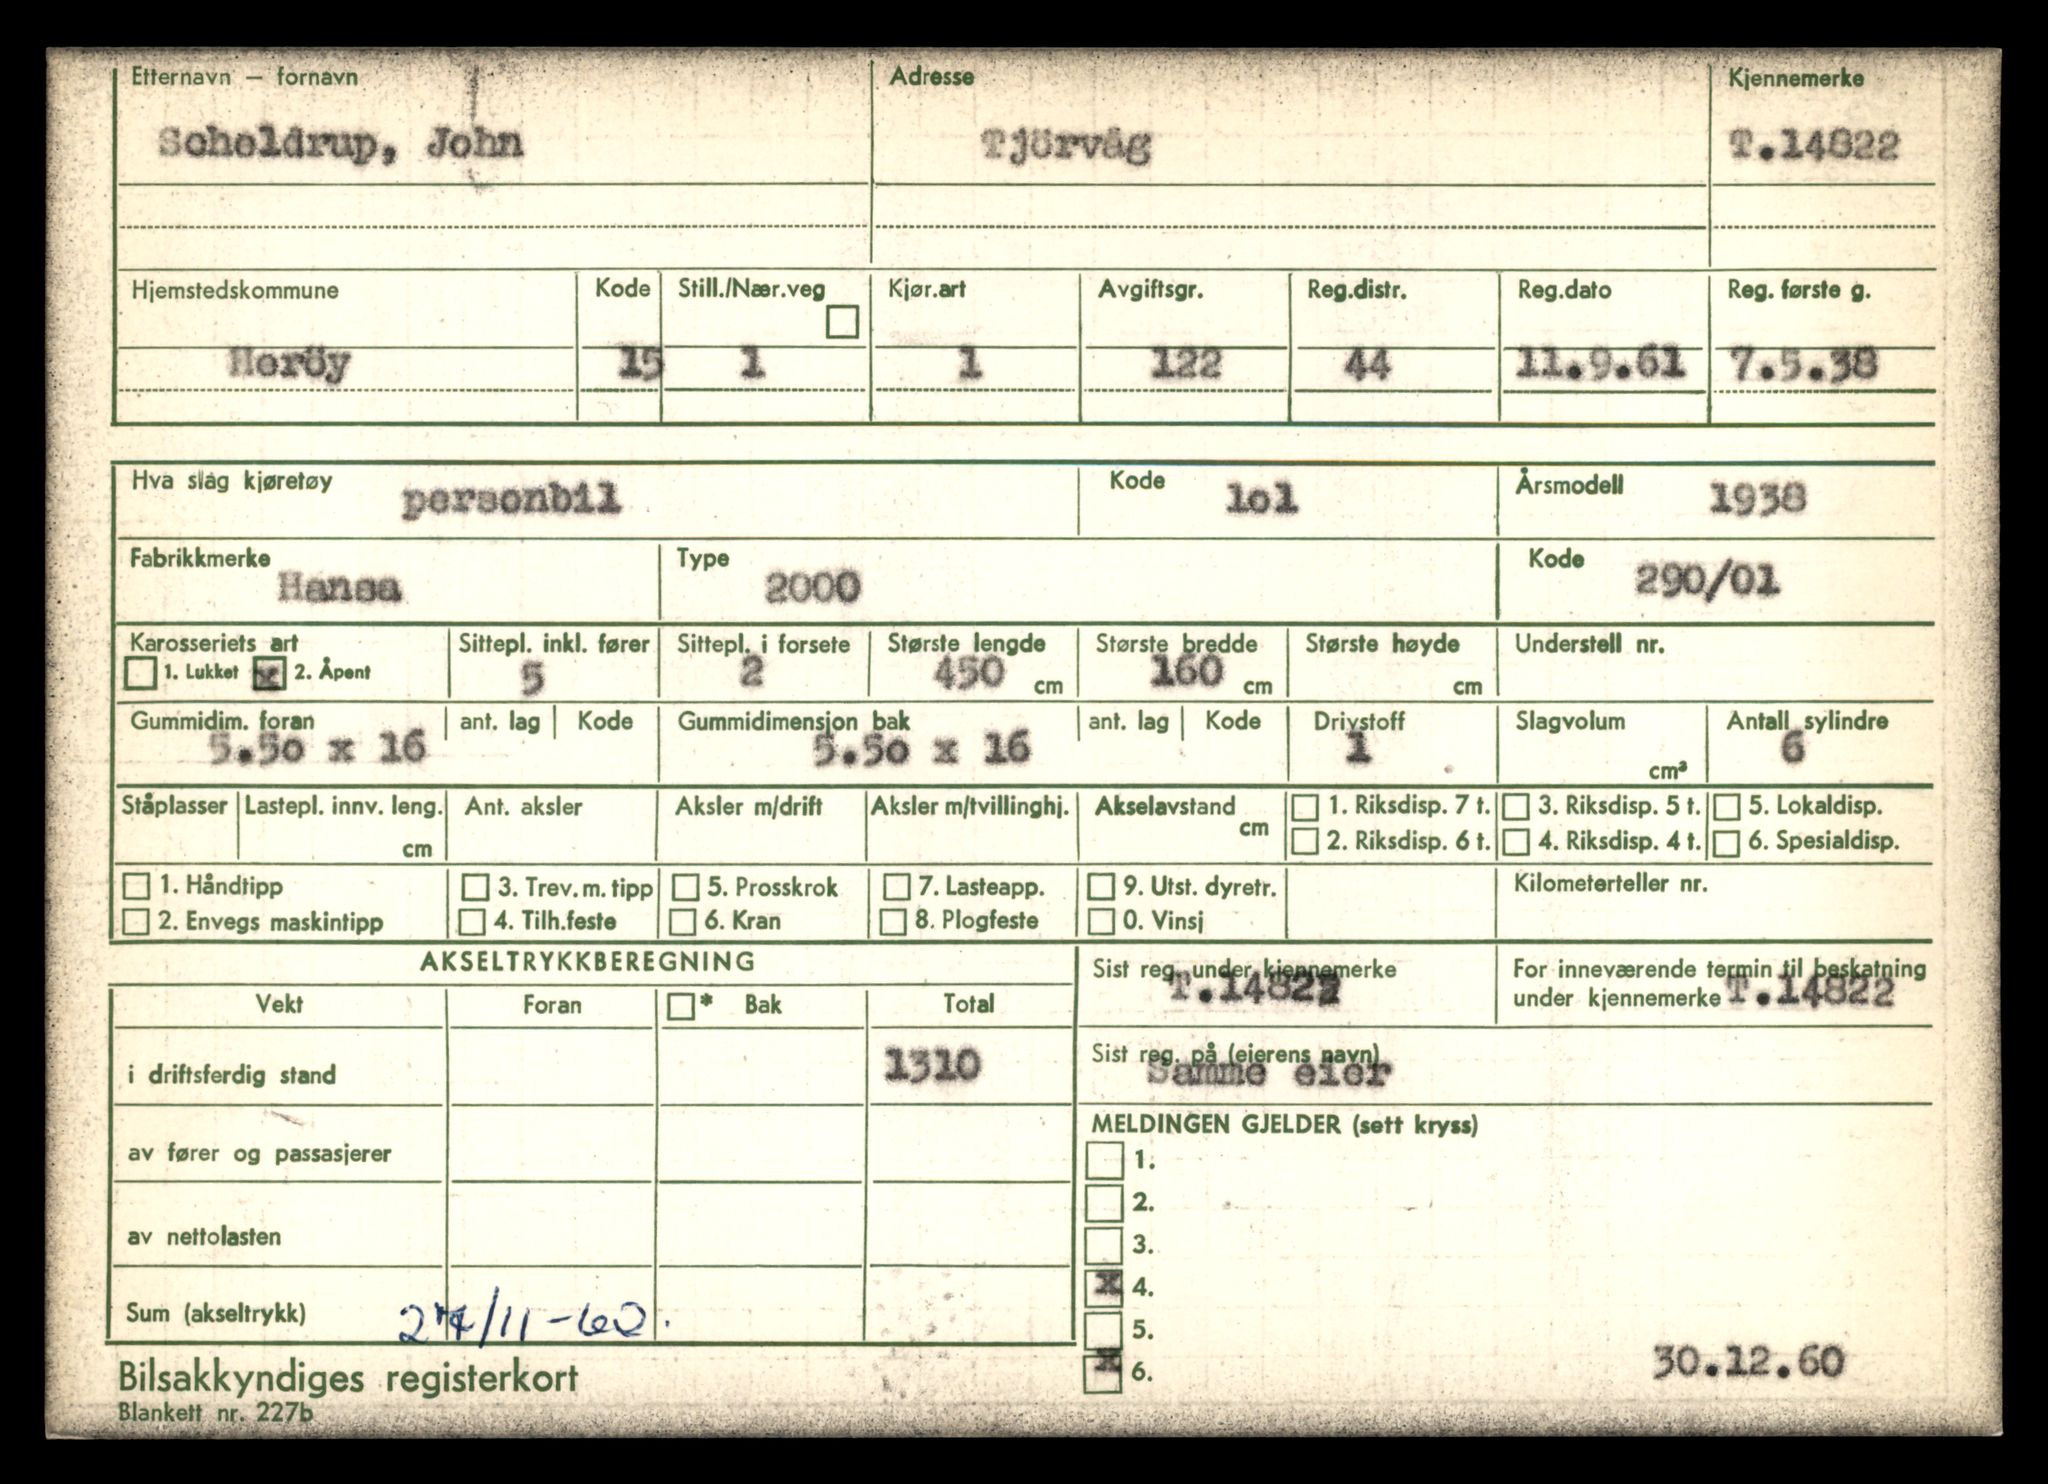 Etternavn — fornavn Adresse Kjennemerke
Scheldrup, John Tjörvåg T.14822
Hjemstedskommune Kode Still./Nær.veg Kjør.art Avgiftsgr. Reg.distr. Reg.dato Reg. første g.
Heröy 15 1 1 122 44 11.9.61 7.5.38
Hva slag kjøretøy personbil Kode lol Årsmodell 1938
Fabrikkmerke Hansa Type 2000 Kode 290/01
Karosseriets art Sittepl. inkl. fører Sittepl. i forsete Største lengde Største bredde Største høyde Understell nr.
1. Lukket x 2. Åpent 5 2 450 cm 160 cm cm
Gummidim. foran ant. lag Kode Gummidimensjon bak ant. lag Kode Drivstoff Slagvolum Antall sylindre
5.5o x 16 5.5o x 16 1 cm³ 6
Ståplasser Lastepl. innv. leng. Ant. aksler Aksler m/drift Aksler m/tvillinghj. Akselavstand 1. Riksdisp. 7 t. 3. Riksdisp. 5 t. 5. Lokaldisp.
cm cm 2. Riksdisp. 6 t. 4. Riksdisp. 4 t. 6. Spesialdisp.
1. Håndtipp 3. Trev. m. tipp 5. Prosskrok 7. Lasteapp. 9. Utst. dyretr. Kilometerteller nr.
2. Envegs maskintipp 4. Tilh.feste 6. Kran 8. Plogfeste 0. Vinsj
AKSELTRYKKBEREGNING
Vekt Foran * Bak Total
i driftsferdig stand 1310
av fører og passasjerer
av nettolasten
Sum (akseltrykk) /11-60.
Sist reg. under kjennemerke T.14822
For inneværende termin til beskatning
under kjennemerke T.14822
Sist reg. på (eierens navn)
Samme eier
MELDINGEN GJELDER (sett kryss)
1.
2.
3.
x 4.
5.
x 6.
30.12.60
Bilsakkyndiges registerkort
Blankett nr. 227b